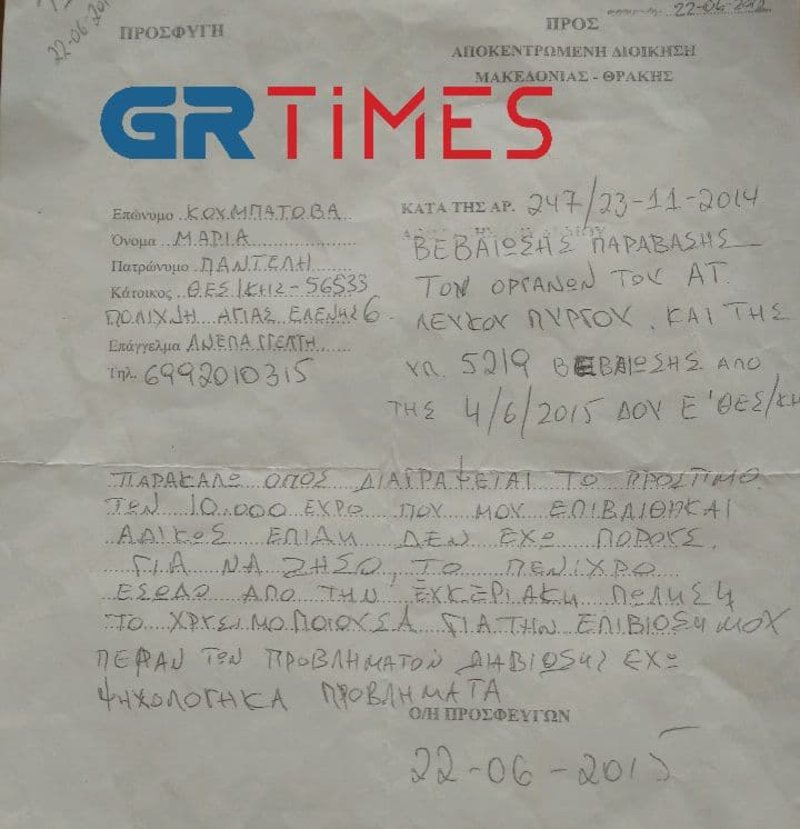 22-06-2015
22-06-2012
ΠΡΟΣΦΥΓΗ
ΠΡΟΣ
ΑΠΟΚΕΝΤΡΩΜΕΝΗ ΔΙΟΙΚΗΣΗ
ΜΑΚΕΔΟΝΙΑΣ - ΘΡΑΚΗΣ
GRTiMES
Επώνυμο ΚΟΥΜΠΑΤΟΒΑ
Όνομα ΜΑΡΙΑ
Πατρώνυμο ΠΑΝΤΕΛΗ
Κάτοικος ΘΕΣ/ΚΗΣ-56533
ΠΟΛΙΧΝΗ ΑΓΙΑΣ ΕΛΕΝΗΣ 6
Επάγγελμα ΑΝΕΠΑΓΓΕΛΤΗ
Τηλ. 6992010315
ΚΑΤΑ ΤΗΣ ΑΡ. 247/23-11-2014
ΒΕΒΑΙΩΣΗΣ ΠΑΡΑΒΑΣΗΣ
ΤΟΝ ΟΡΓΑΝΩΝ ΤΟΥ ΑΤ.
ΛΕΥΚΟΥ ΠΥΡΓΟΥ, ΚΑΙ ΤΗΣ
ΥΠ. 5219 ΒΕΒΑΙΩΣΗΣ ΑΠΟ
ΤΗΣ 4/6/2015 ΔΟΥ Ε' ΘΕΣ/ΚΗ
ΠΑΡΑΚΑΛΩ ΟΠΟΣ ΔΙΑΓΡΑΨΕΤΑΙ ΤΟ ΠΡΟΣΤΙΜΟ
ΤΩΝ 10.000 ΕΥΡΟ ΠΟΥ ΜΟΥ ΕΠΙΒΑΙΘΗΚΑΙ
ΑΔΙΚΟΣ ΕΠΙΔΗ ΔΕΝ ΕΧΩ ΠΟΡΟΥΣ
ΓΙΑ ΝΑ ΖΗΣΟ, ΤΟ ΠΕΝΙΧΡΟ
ΕΣΩΔΟ ΑΠΟ ΤΗΝ ΕΥΚΕΡΙΑΚΗ ΠΩΛΗΣΗ
ΤΟ ΧΡΥΣΙΜΟΠΟΙΟΥΣΑ ΓΙΑ ΤΗΝ ΕΠΙΒΙΟΣΗ ΜΟΥ
ΠΕΡΑΝ ΤΩΝ ΠΡΟΒΛΗΜΑΤΟΝ ΔΙΑΒΙΩΣΗΣ ΕΧΩ
ΨΗΧΟΛΟΓΗΚΑ ΠΡΟΒΛΗΜΑΤΑ
Ο/Η ΠΡΟΣΦΕΥΓΩΝ
22-06-2015